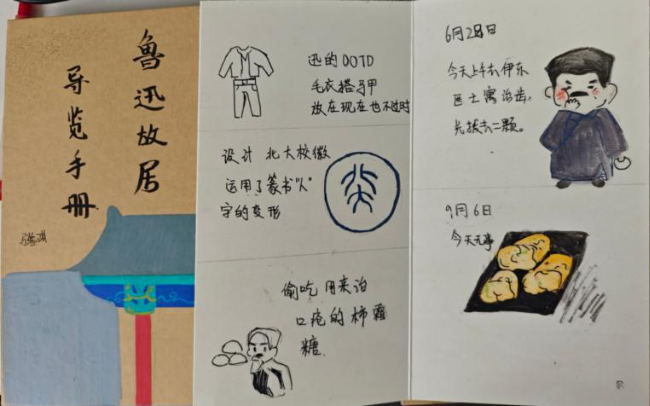 鲁迅故居
导览手册
迅的OOTD
毛衣搭马甲
放在现在也不过时
设计 北大校徽
运用了篆书“人”
字的变形
北大
偷吃 用来治
口疮的柿霜
糖
6月28日
今天上午去伊东
医士寓治齿,
先拔去二颗。
9月6日
今天无事